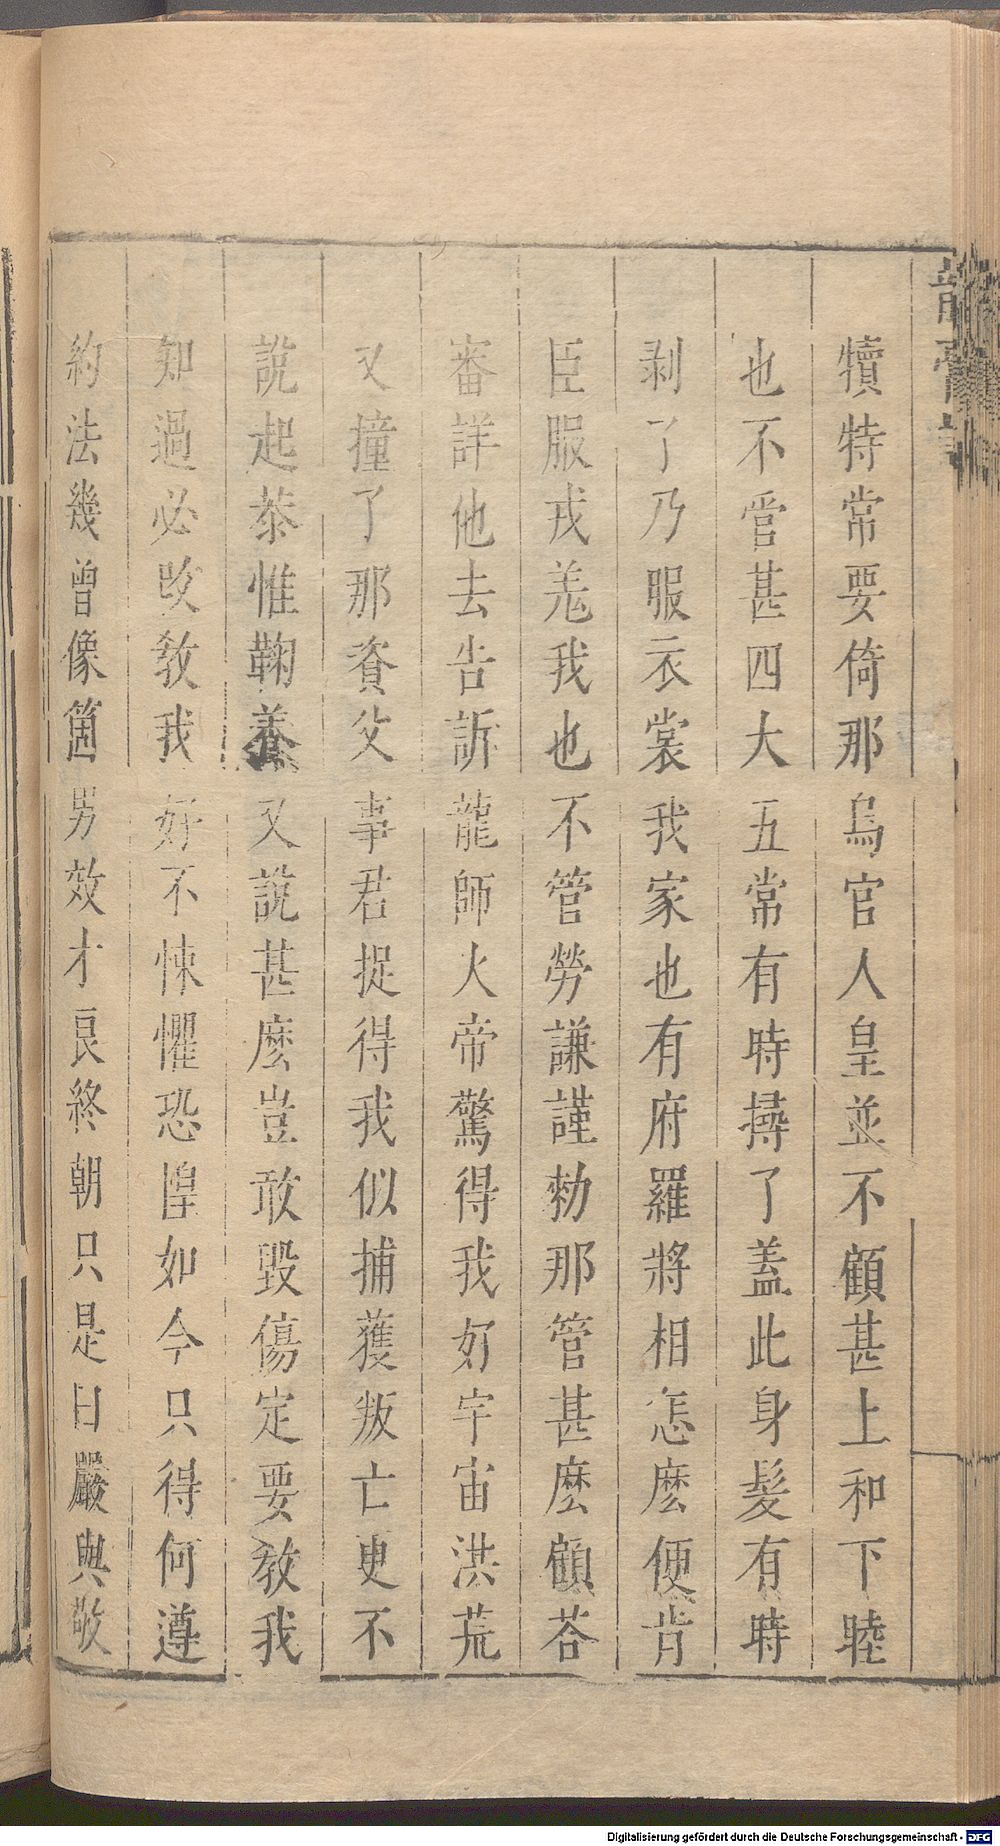 犢特常要倚那鳥官人皇並不顧甚上和下睦
也不管甚四大五常有時撏了蓋此身髮有時
剥了乃服衣裳我家也有府羅將相怎麽便肯
臣服戎羌我也不管勞謙謹勑那管甚麽顧荅
審詳他去告訴龍師火帝驚得我好宇宙洪荒
又撞了那資父事君捉得我似捕獲叛亡更不
說起恭惟鞠養又說甚麽豈敢毀傷定要教我
知過必改教我好不悚懼恐惶如今只得何遵
約法幾曾像箇男效才良終朝只是曰嚴與敬
Digitalisierung gefördert durch die Deutsche Forschungsgemeinschaft - DFG